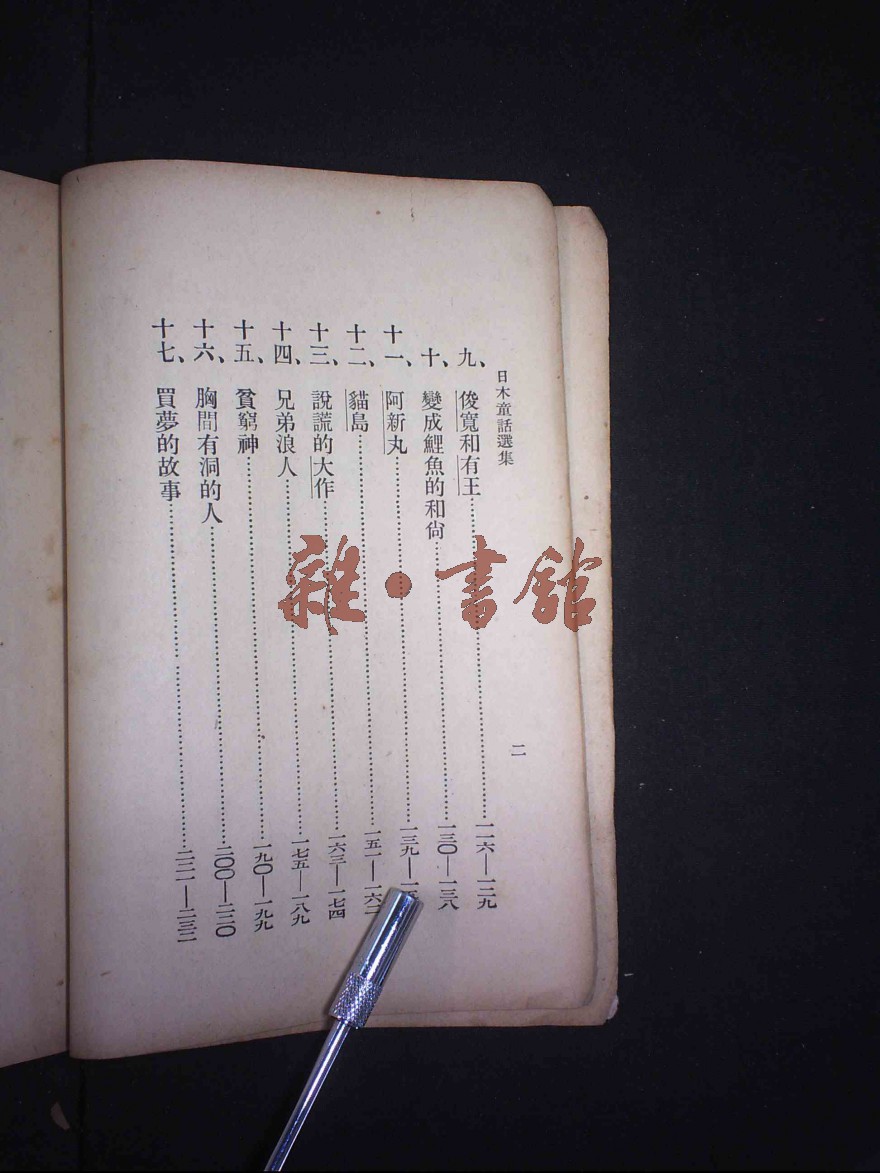 日本童話選集
二
九、俊寬和有王……一一六—一二九
十、變成鯉魚的和尙……一三〇—一三八
十一、阿新丸……一三九—一
十二、貓島……一五一—一六二
十三、說謊的大作……一六三—一七四
十四、兄弟浪人……一七五—一八九
十五、貧窮神……一九〇—一九九
十六、胸間有洞的人……二〇〇—二二〇
十七、買夢的故事……二二一—二三二
雜·書館